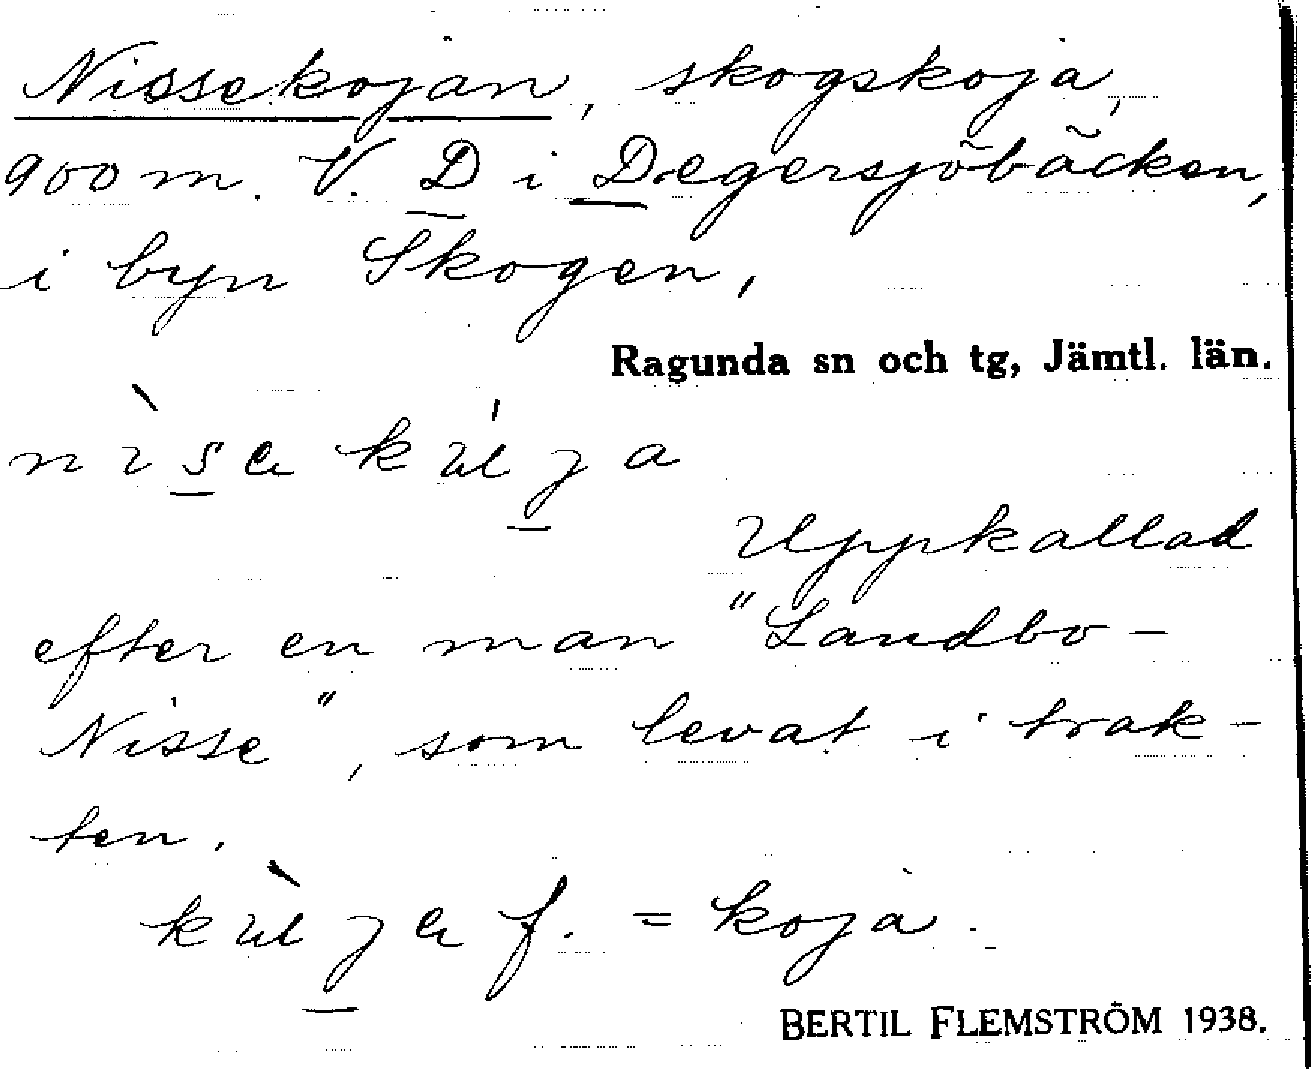 Nissekojan, skogskoja,
900 m. V. D i Dægersjöbäcken,
i byn Skogen,
Ragunda sn och tg, Jämtl. län.
Uppkallad
efter en man "Landbo-
Nisse", som levat i trak-
ten.
f. = koja.
BERTIL FLEMSTRÖM 1938.